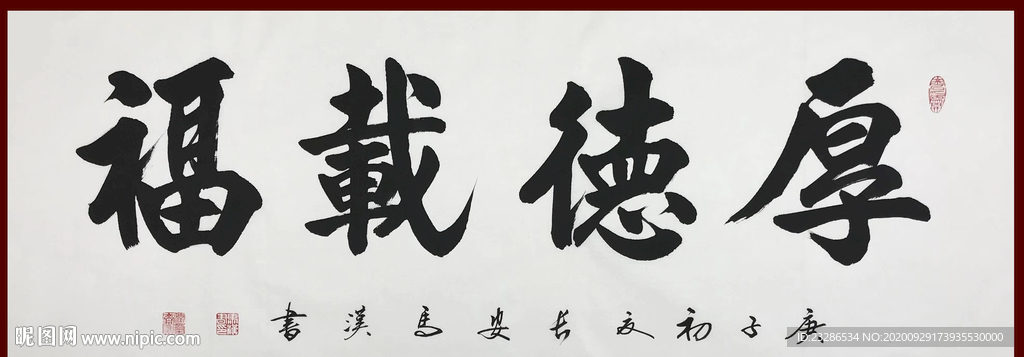 厚德載福
庚子初夏長安馬漢書
昵图网 www.nipic.com
ID:23286534 NO:20200929173935530000